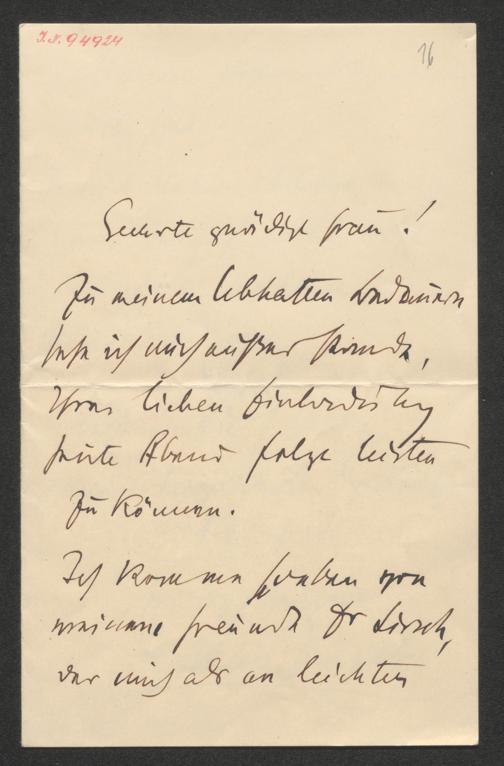 I.N. 94924
16
Geehrte gnädige Frau!
Zu meinem lebhaften Bedauern
sehe ich mich außer Stande,
Ihrer lieben Einladung
heute Abend folge leisten
zu können.
Ich komme soeben von
meinem Freunde Dr
der mich als an leichten